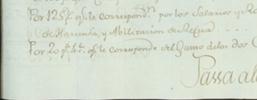 Por 125 p.s q.e le correspond.n por los Salarios y
de Hacienda, y Avilitacion de
Por 20 p.s q.e le corresponde del Quinto delos dos
Passa al